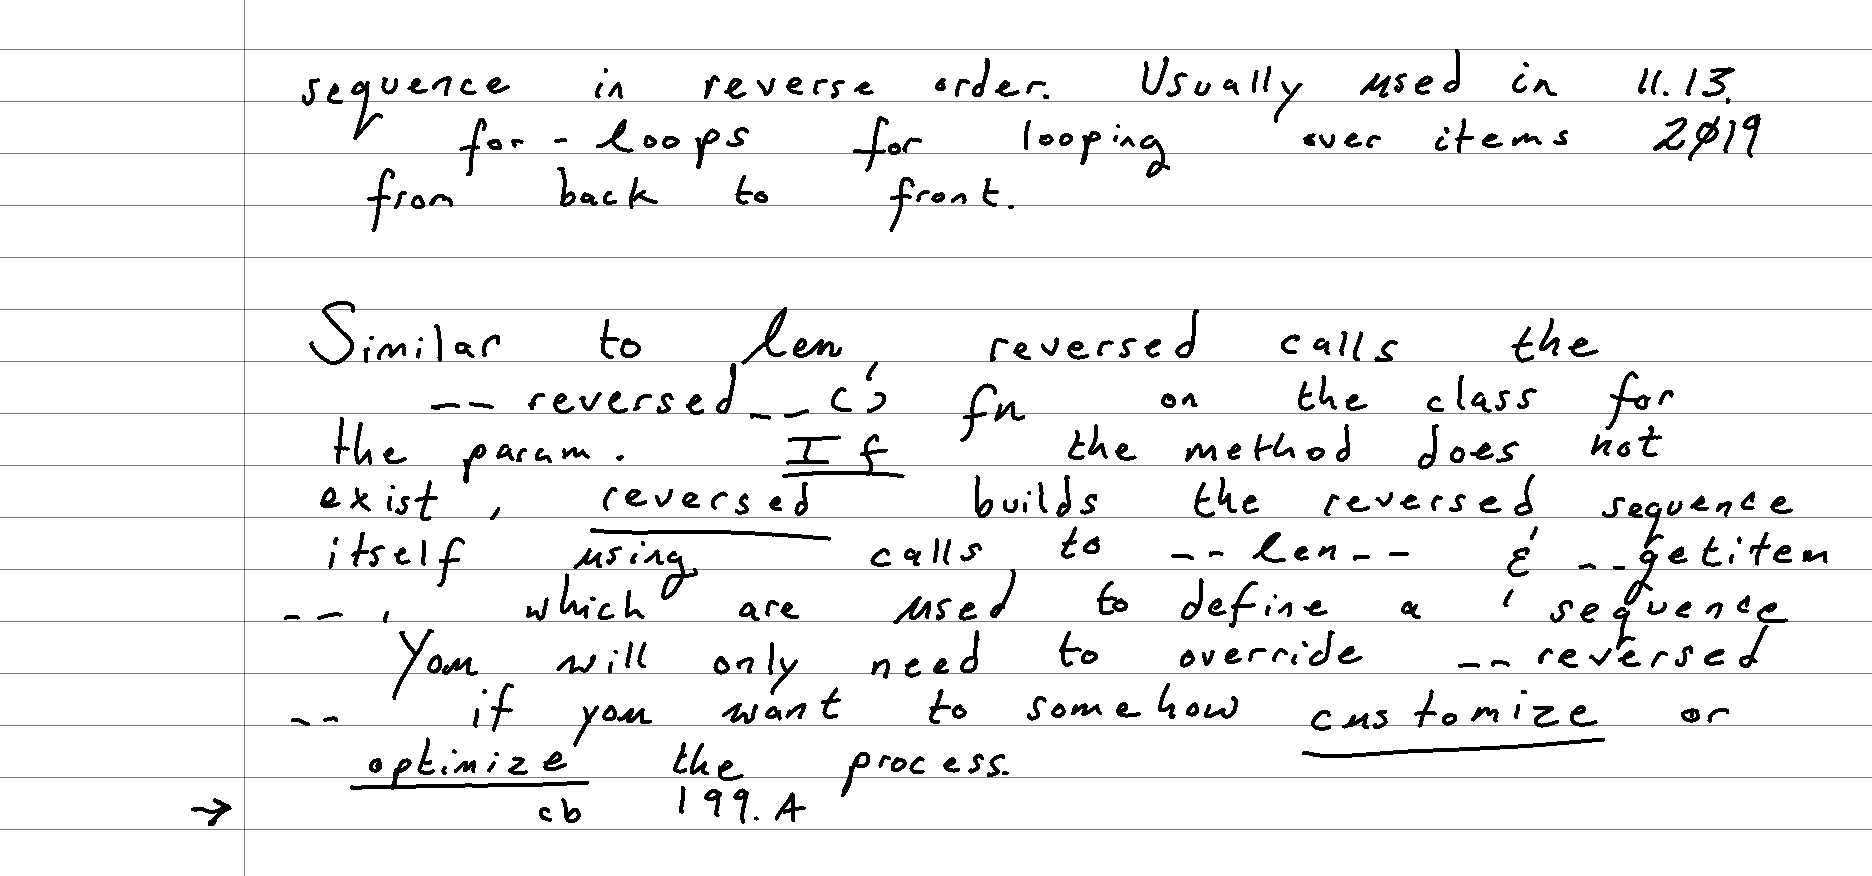 sequence in reverse order. Usually used in 11.13.
for-loops for looping over items 2019
from back to front.
Similar to len, reversed calls the
__reversed__() fn on the class for
the param. If the method does not
exist, reversed builds the reversed sequence
itself using calls to __len__ & __getitem
__, which are used to define a sequence
You will only need to override __reversed
__ if you want to somehow customize or
optimize the process.
→ cb 199.A